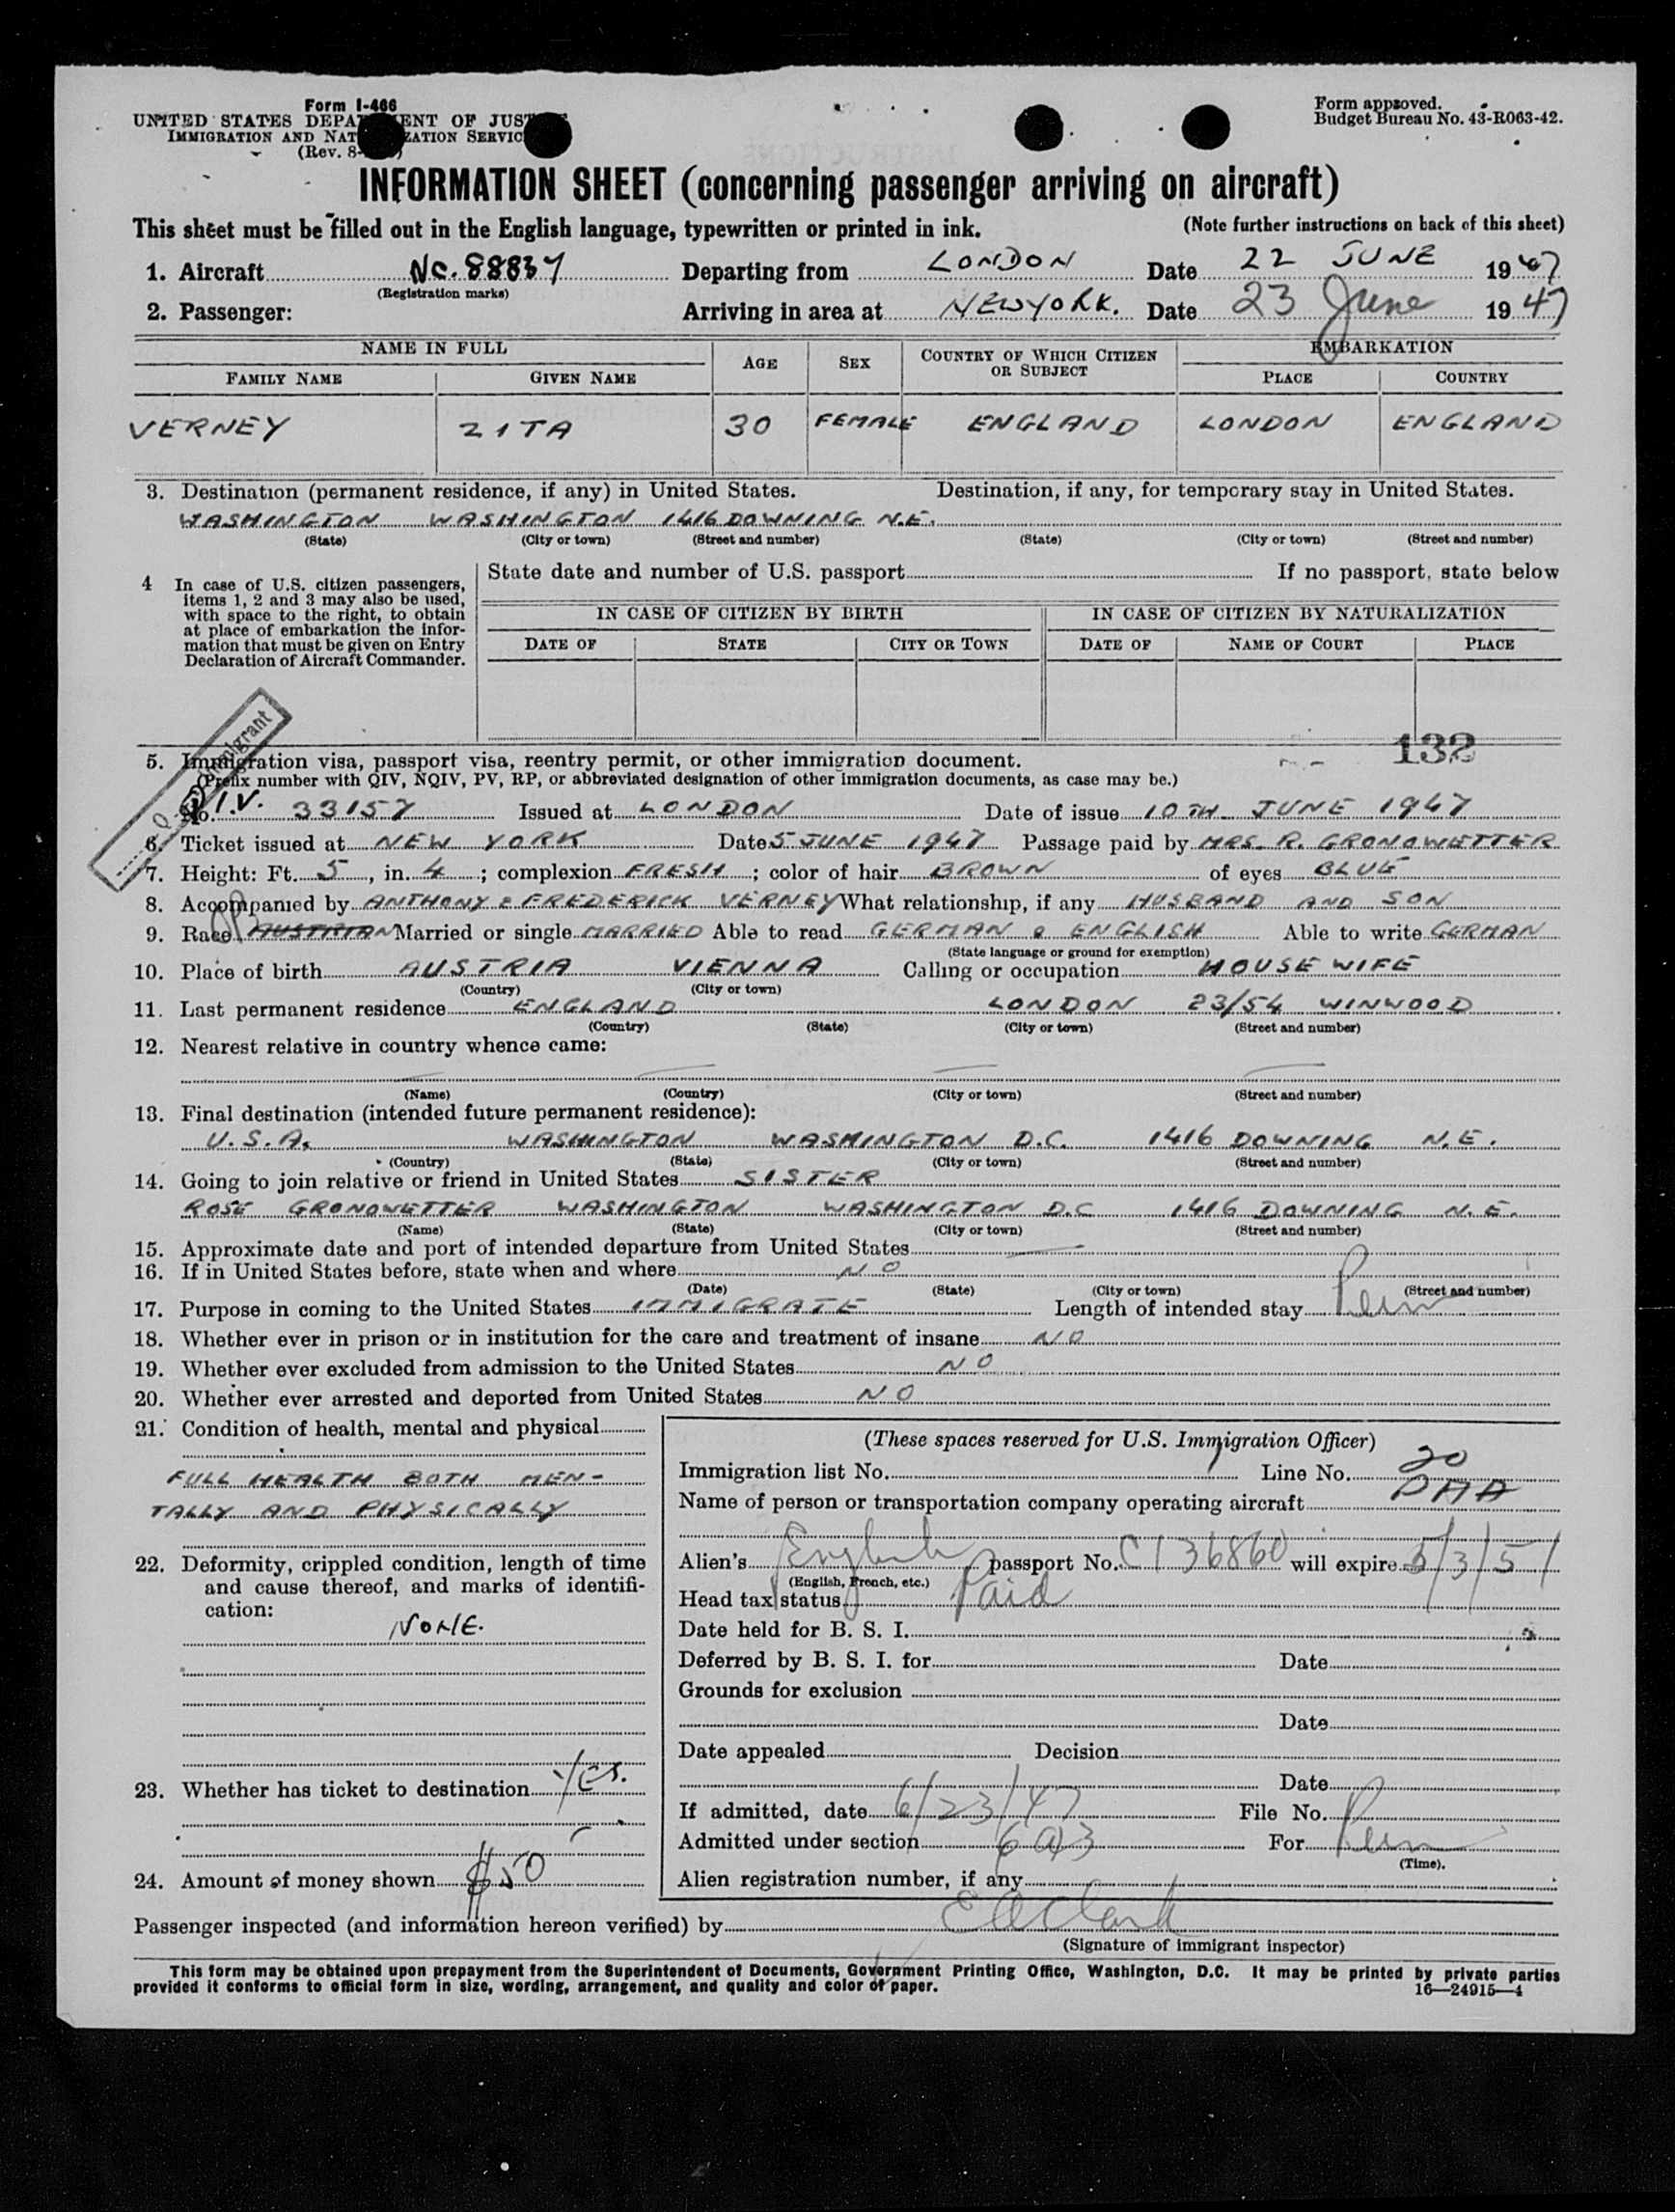 Form I-466
UNITED STATES DEPA ENT OF JUS
IMMIGRATION AND NAT ZATION SERVIC
(Rev. 8-
Form approved.
Budget Bureau No. 43-R063-42.
INFORMATION SHEET (concerning passenger arriving on aircraft)
This sheet must be filled out in the English language, typewritten or printed in ink. (Note further instructions on back of this sheet)
1. Aircraft NC. 88837 Departing from LONDON Date 22 JUNE 1947
(Registration marks)
2. Passenger: Arriving in area at NEWYORK. Date 23 June 1947
NAME IN FULL AGE SEX COUNTRY OF WHICH CITIZEN OR SUBJECT EMBARKATION
FAMILY NAME GIVEN NAME PLACE COUNTRY
VERNEY ZITA 30 FEMALE ENGLAND LONDON ENGLAND
3. Destination (permanent residence, if any) in United States. Destination, if any, for temporary stay in United States.
WASHINGTON WASHINGTON 1416 DOWNING N.E.
(State) (City or town) (Street and number) (State) (City or town) (Street and number)
4 In case of U.S. citizen passengers, items 1, 2 and 3 may also be used, with space to the right, to obtain at place of embarkation the information that must be given on Entry Declaration of Aircraft Commander.
State date and number of U.S. passport If no passport, state below
IN CASE OF CITIZEN BY BIRTH IN CASE OF CITIZEN BY NATURALIZATION
DATE OF STATE CITY OR TOWN DATE OF NAME OF COURT PLACE
132
5. Immigration visa, passport visa, reentry permit, or other immigration document.
(Prefix number with QIV, NQIV, PV, RP, or abbreviated designation of other immigration documents, as case may be.)
No. I.V. 33157 Issued at LONDON Date of issue 10TH JUNE 1947
6. Ticket issued at NEW YORK Date 5 JUNE 1947 Passage paid by MRS. R. GRONOWETTER
7. Height: Ft. 5, in. 4; complexion FRESH; color of hair BROWN of eyes BLUE
8. Accompanied by ANTHONY & FREDERICK VERNEY What relationship, if any HUSBAND AND SON
9. Race AUSTRIAN Married or single MARRIED Able to read GERMAN & ENGLISH Able to write GERMAN
(State language or ground for exemption)
10. Place of birth AUSTRIA VIENNA Calling or occupation HOUSE WIFE
(Country) (City or town)
11. Last permanent residence ENGLAND LONDON 23/54 WINWOOD
(Country) (State) (City or town) (Street and number)
12. Nearest relative in country whence came:
(Name) (Country) (City or town) (Street and number)
13. Final destination (intended future permanent residence):
U.S.A. WASHINGTON WASHINGTON D.C. 1416 DOWNING N.E.
(Country) (State) (City or town) (Street and number)
14. Going to join relative or friend in United States SISTER
ROSE GRONOWETTER WASHINGTON WASHINGTON D.C 1416 DOWNING N.E.
(Name) (State) (City or town) (Street and number)
15. Approximate date and port of intended departure from United States
16. If in United States before, state when and where NO
(Date) (State) (City or town) (Street and number)
17. Purpose in coming to the United States IMMIGRATE Length of intended stay Perm
18. Whether ever in prison or in institution for the care and treatment of insane NO
19. Whether ever excluded from admission to the United States NO
20. Whether ever arrested and deported from United States NO
21. Condition of health, mental and physical
FULL HEALTH BOTH MEN-
TALLY AND PHYSICALLY
22. Deformity, crippled condition, length of time
and cause thereof, and marks of identifi-
cation:
NONE.
23. Whether has ticket to destination Yes.
24. Amount of money shown $50
(These spaces reserved for U.S. Immigration Officer)
Immigration list No. Line No. 20
Name of person or transportation company operating aircraft PAA
Alien's English passport No. C136860 will expire 3/3/51
(English, French, etc.)
Head tax status Paid
Date held for B. S. I.
Deferred by B. S. I. for Date
Grounds for exclusion
Date
Date appealed Decision
Date
If admitted, date 6/23/47 File No.
Admitted under section 6 a 3 For Perm
(Time).
Alien registration number, if any
Passenger inspected (and information hereon verified) by E A Clark
(Signature of immigrant inspector)
This form may be obtained upon prepayment from the Superintendent of Documents, Government Printing Office, Washington, D.C. It may be printed by private parties
provided it conforms to official form in size, wording, arrangement, and quality and color of paper.
16—24915—4